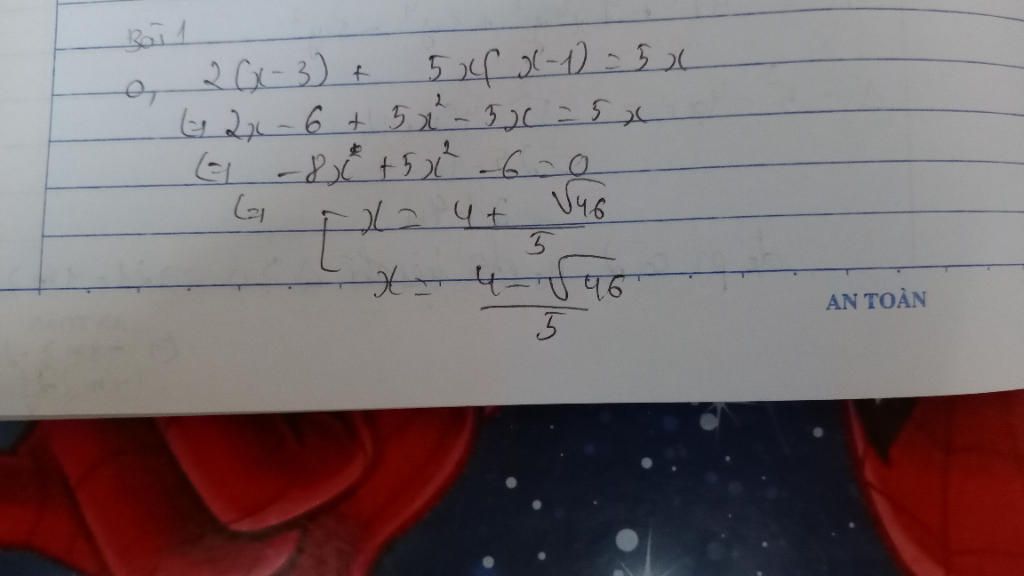 Bài 1
a, 2(x-3) + 5x(x-1) = 5x
(=) 2x - 6 + 5x² - 5x = 5x
(=) -8x + 5x² - 6 = 0
(=) [ x = (4 + √46)/5
x = (4 - √46)/5
AN TOÀN